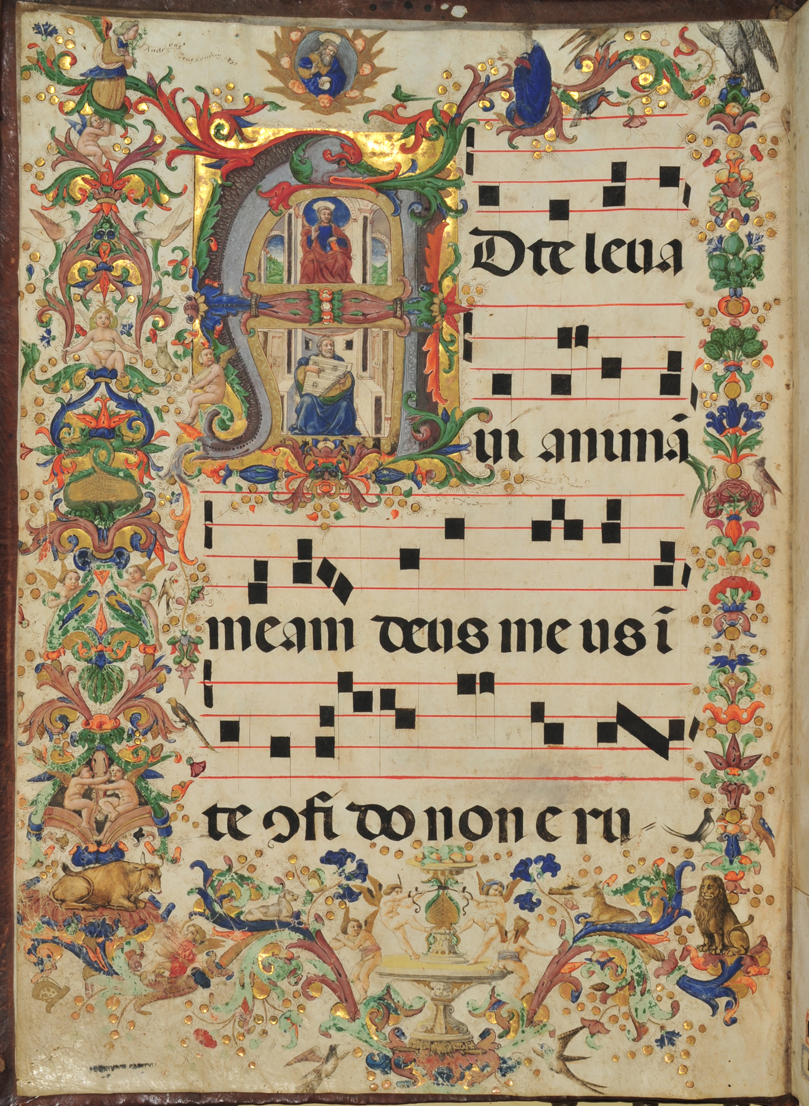 AD te leva
vi animā
meam deus meus ī
te ↄfi do non e ru